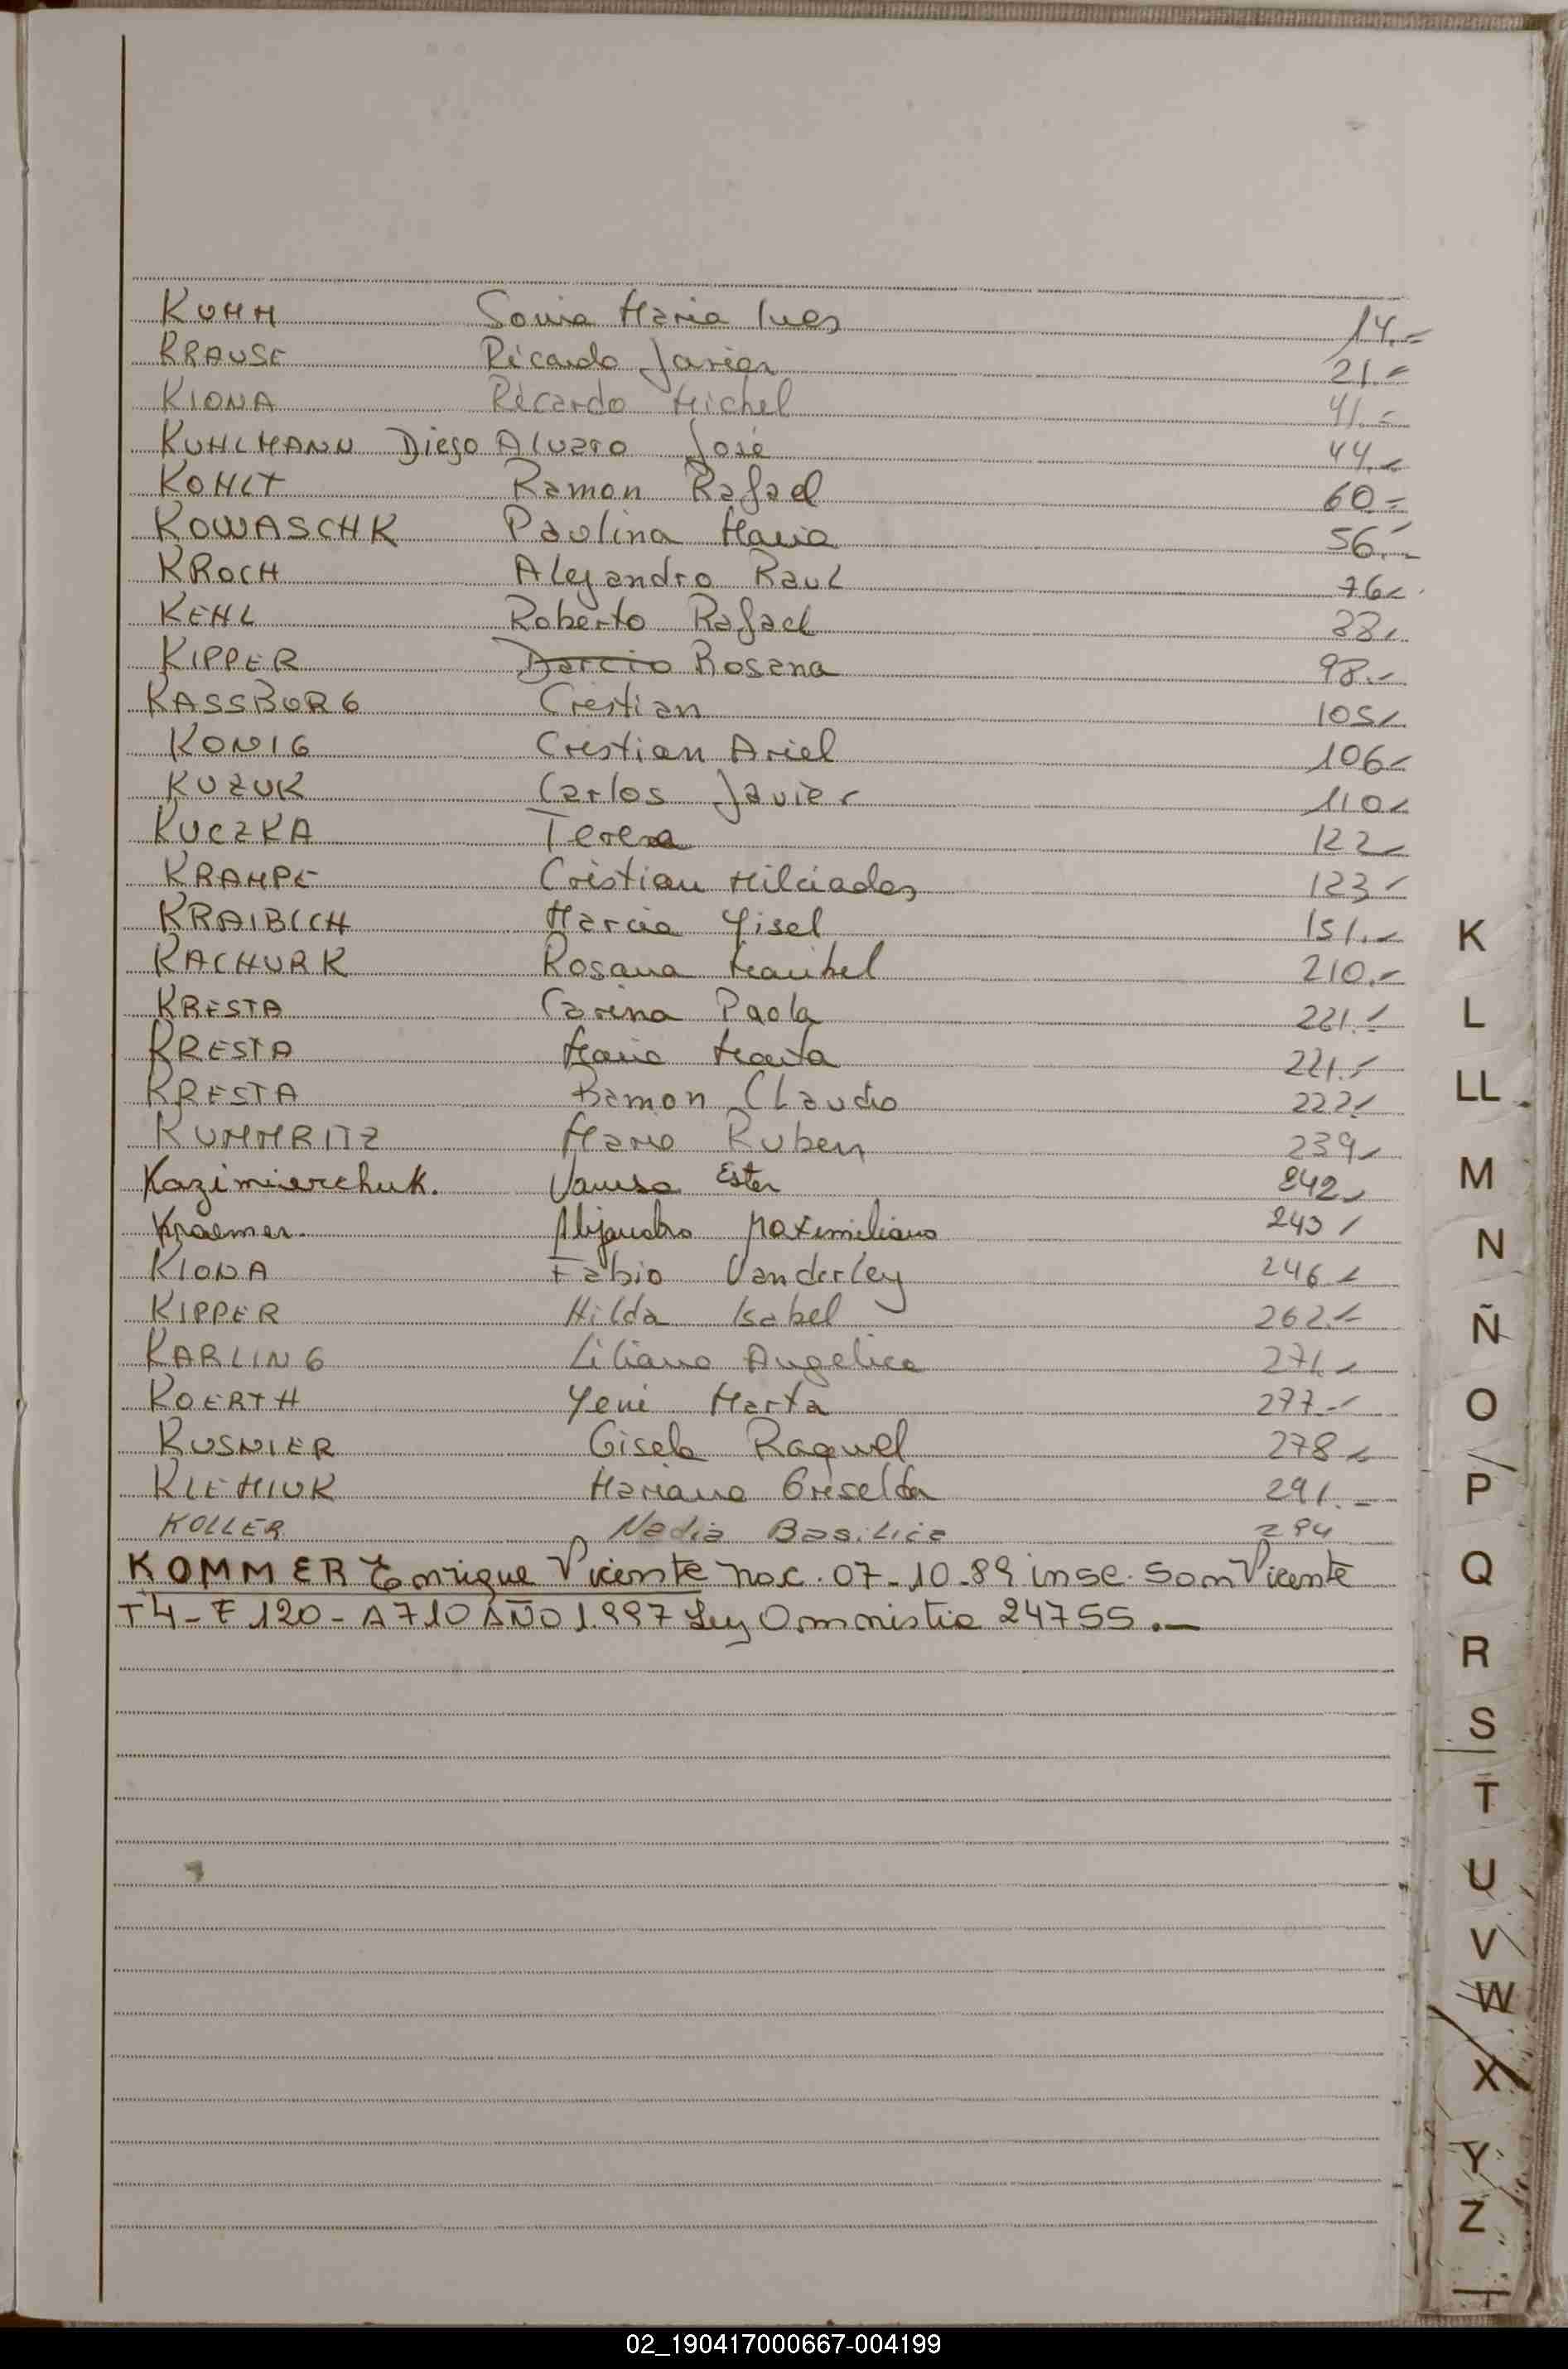 KUHM Sonia Maria Ines 14.=
KRAUSE Ricardo Javier 21.=
KIONA Ricardo Michel 41.=
KUHLMANN Diego Alvaro José 44.-
KOHLT Ramon Rafael 60.=
KOWASCHK Paulina Maria 56.-
KROCH Alejandro Raul 76-
KEHL Roberto Rafael
KIPPER Darcio Rosana 98.-
KASSBORG Cristian 105-
KONIG Cristian Ariel 106-
KUZUK Carlos Javier 110-
KUCZKA Teresa 122-
KRAMPE Cristian Milciades 123-
KRAIBICH Marcia Yisel 151.-
KACHURK Rosana Maribel 210.-
KRESTA Carina Paola 221.-
KRESTA Maria Marta 221.-
KRESTA Ramon Claudio 222-
KUMMRITZ Mario Ruben 239-
Kazimierchuk. Vanesa Ester 242-
Kraemer. Alejandro Maximiliano 243-
KIONA Fabio Vanderley 246-
KIPPER Hilda Isabel 262.-
KARLING Liliana Angelica 271.-
KOERTH Yeni Marta 277.-
KUSNIER Gisela Raquel 278-
KLEMIUK Mariana Griselda 291.-
KOLLER Nadia Basilicia 294
KOMMER Enrique Vicente nac. 07-10-89 insc. San Vicente
T4-F120-A710 AÑO 1.997 Ley Amnistia 24755.-
K
L
LL
M
N
Ñ
O
P
Q
R
S
T
U
V
W
X
Y
Z
02_190417000667-004199